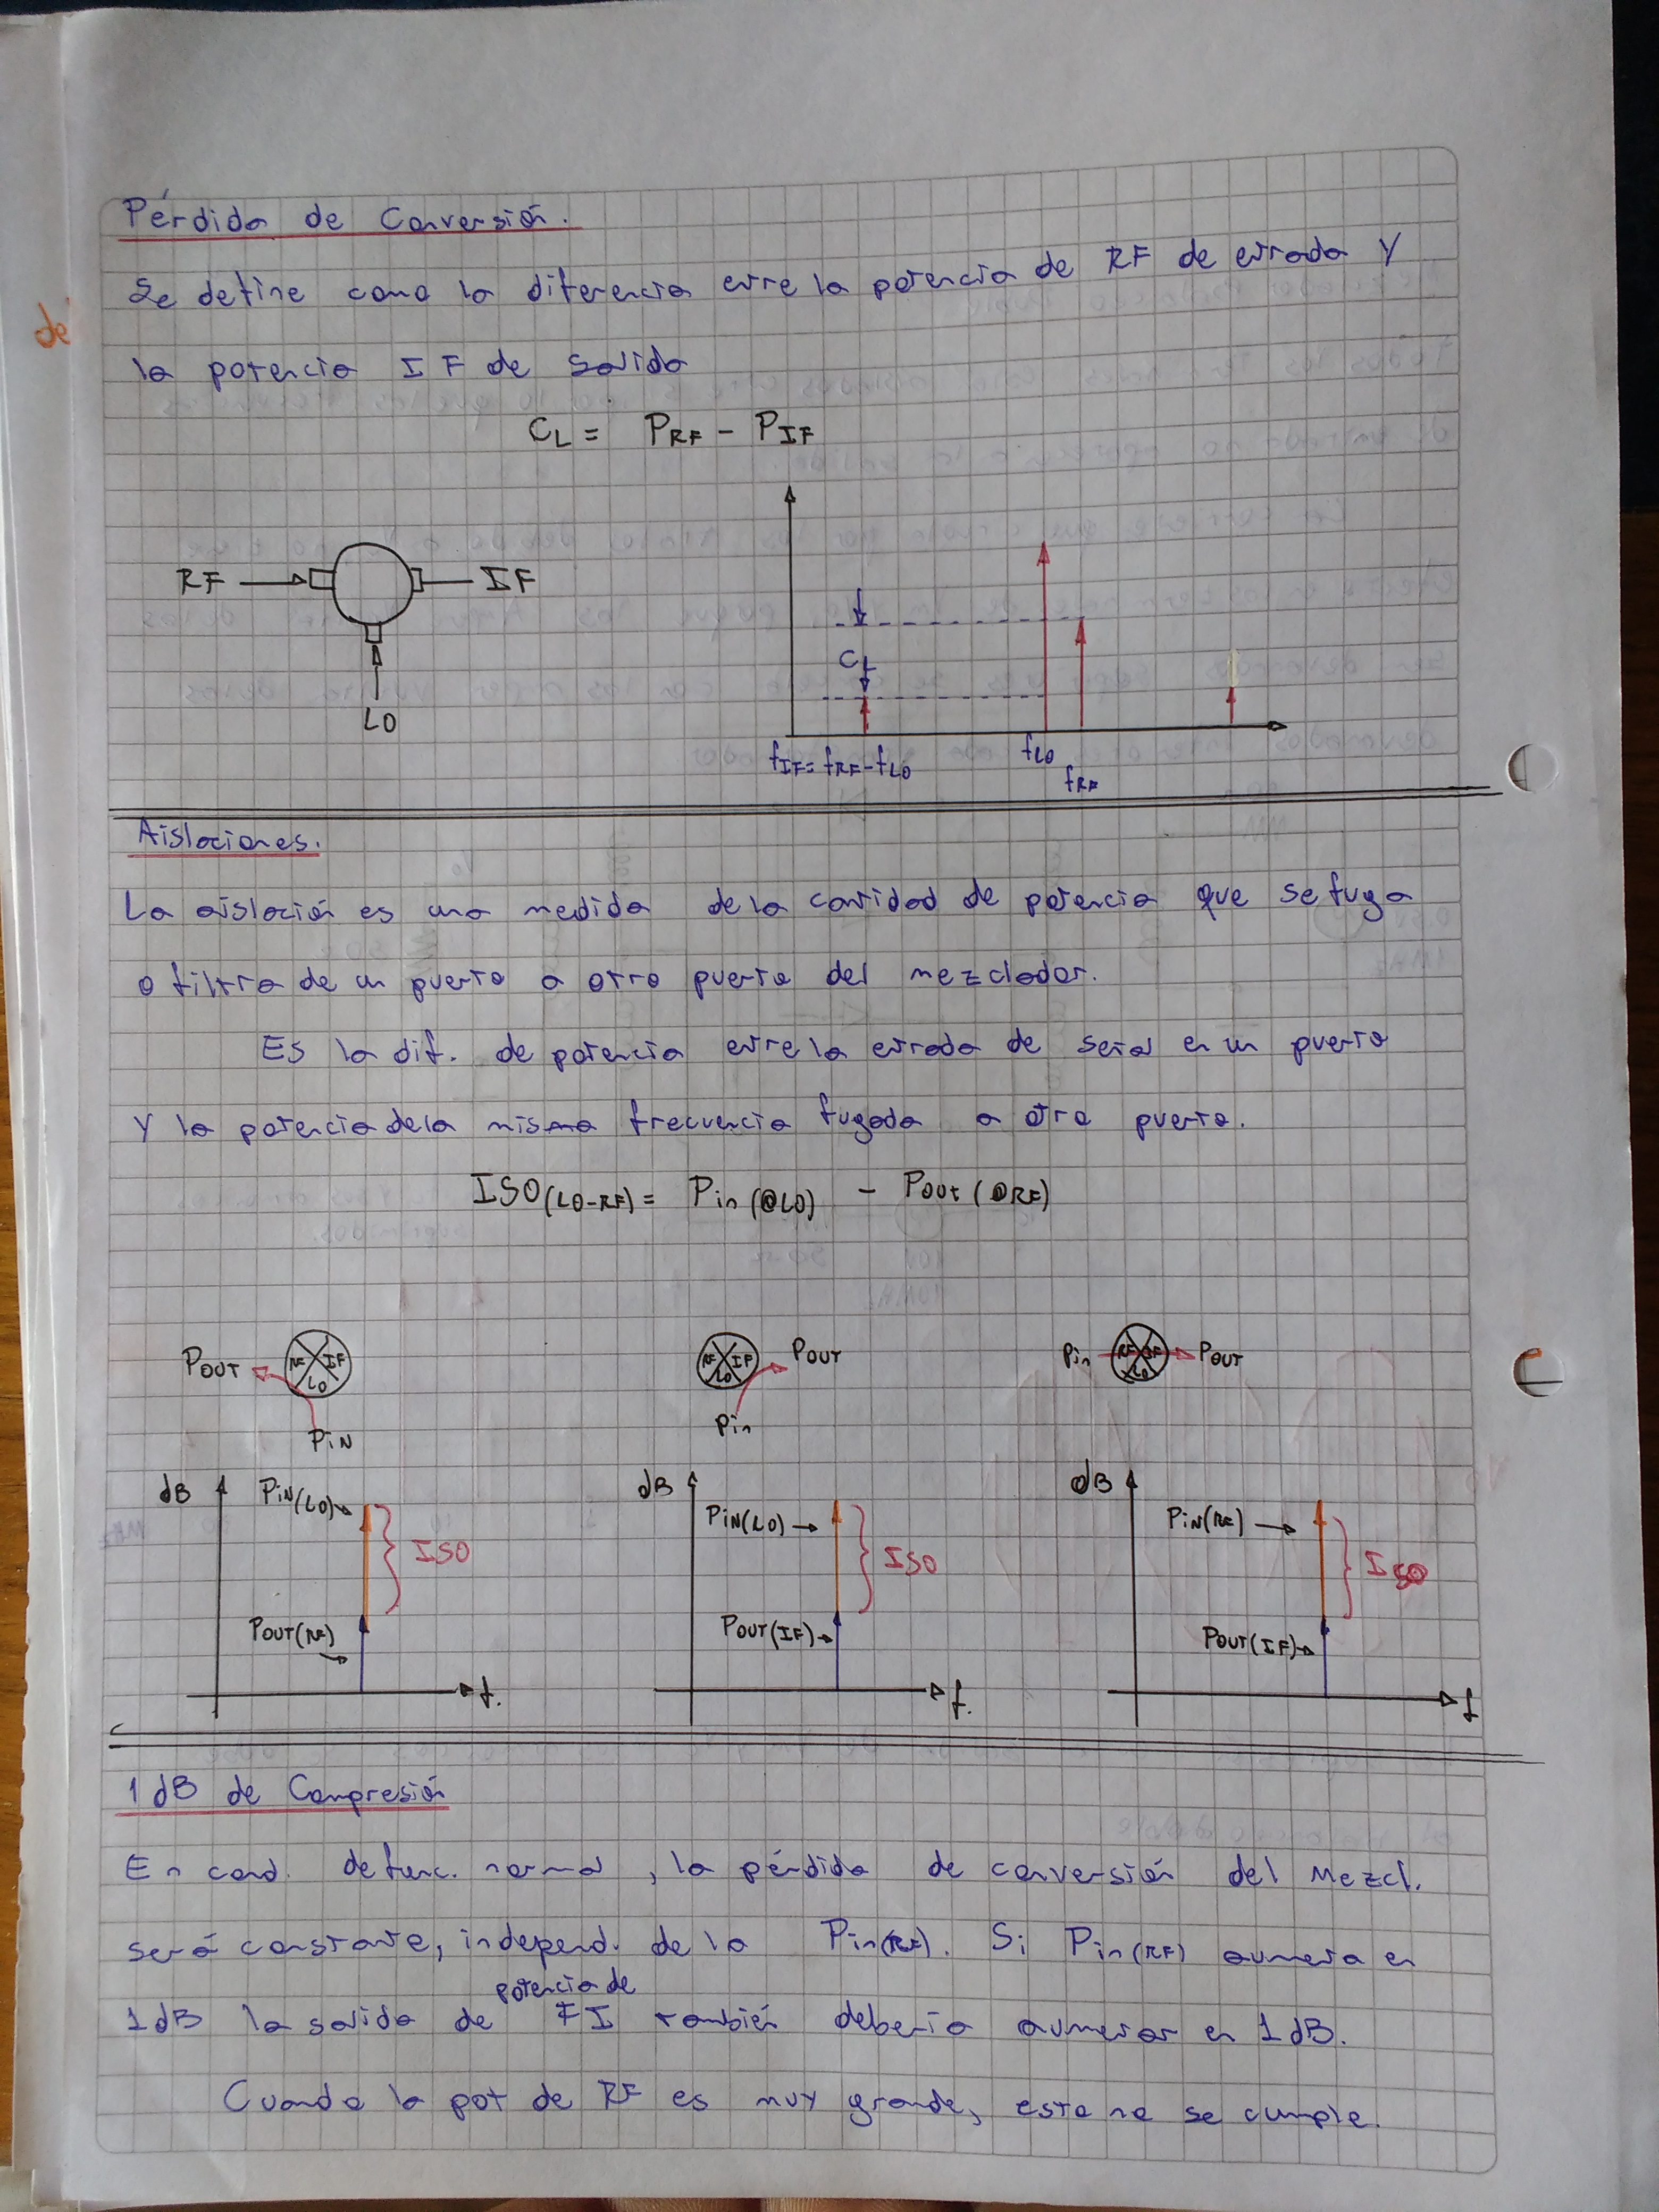 de
Pérdida de Conversión.
Se define como la diferencia entre la potencia de RF de entrada y
la potencia IF de salida
CL = PRF - PIF
RF
IF
LO
CL
fIF = fRF - fLO
fLO
fRF
Aislaciones.
La aislación es una medida de la cantidad de potencia que se fuga
o filtra de un puerto a otro puerto del mezclador.
Es la dif. de potencia entre la entrada de señal en un puerto
y la potencia de la misma frecuencia fugada a otro puerto.
ISO(LO-RF) = Pin(@LO) - Pout(@RF)
POUT RF IF LO PiN
RF IF LO POUT Pin
Pin RF IF LO POUT
dB PiN(LO) ISO POUT(RF) f.
dB PiN(LO) ISO POUT(IF) f.
dB PiN(RF) ISO POUT(IF) f
1 dB de Compresión
En cond. de func. normal, la pérdida de conversión del Mezcl.
será constante, independ. de la Pin(RF). Si Pin(RF) aumenta en
potencia de
1dB la salida de FI también debería aumentar en 1 dB.
Cuando la pot de RF es muy grande, esto no se cumple.